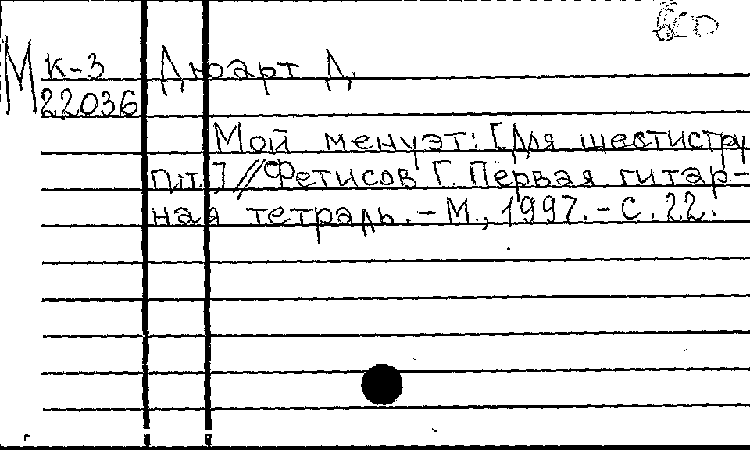 М К-3 Дюарт Д.
22036
Мой менуэт: [Для шестистру
гит.] // Фетисов Г. Первая гитар-
ная тетрадь. – М., 1997. – С. 22.